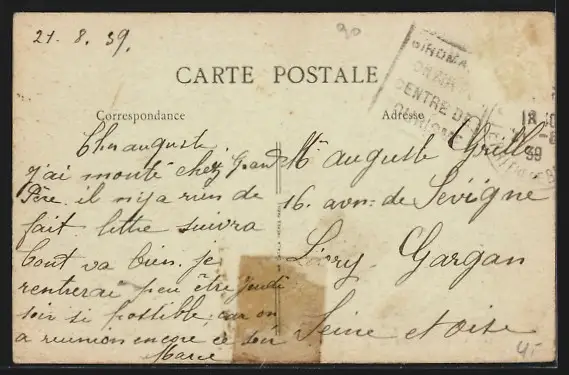 21. 8. 39.
90
CARTE POSTALE
Correspondance
Adresse
Cher auguste
j'ai monté chez Grand
Père il n'y a rien de
fait. lettre suivra
tout va bien, je
rentrerai peu être jeudi
soir si possible car on
a reunion encore ce soir
Marce
Mr auguste Grille
16. aven: de Sévigné
Livry. Gargan
Seine et oise
CENTRE DE
18
39